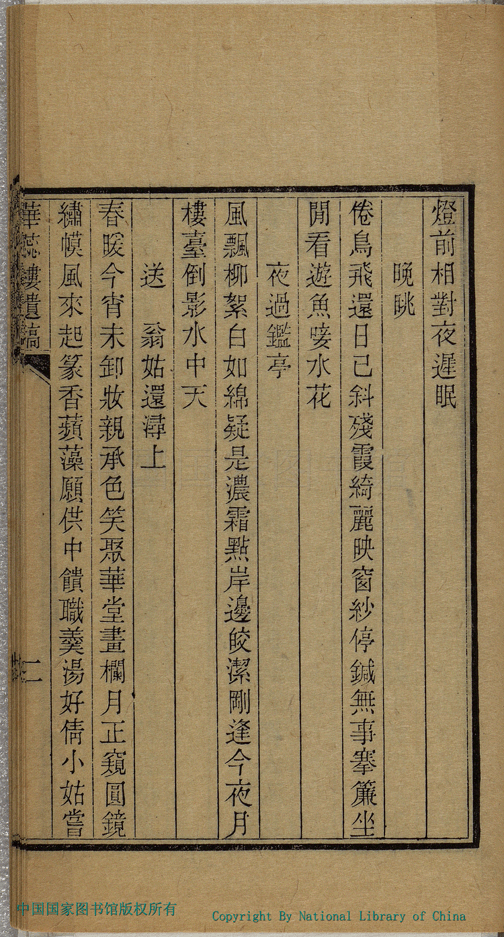 燈前相對夜遲眠
晚眺
倦鳥飛還日已斜殘霞綺麗映窗紗停鍼無事搴簾坐
閒看遊魚唼水花
夜過鑑亭
風飄柳絮白如綿疑是濃霜點岸邊皎潔剛逢今夜月
樓臺倒影水中天
送　翁姑還潯上
春暖今宵未卸妝親承色笑聚華堂畫欄月正窺圓鏡
繡幙風來起篆香蘋藻願供中饋職羹湯好倩小姑嘗
華蕊樓遺稿
二
中国国家图书馆版权所有
Copyright By National Library of China